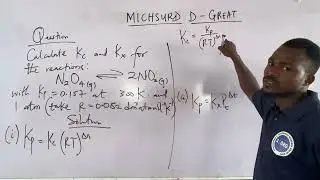 MICHSURD D - GREAT
Question
Calculate Kc and Kx for
the reactions:
N₂O₄(g) ⇌ 2NO₂(g)
with Kp = 0.157 at 300K and
1 atm (take R = 0.082 dm³atmol⁻¹K⁻¹)
Solution
(i) Kp = Kc (RT)^Δn
Kc = Kp / (RT)^Δn
(ii) Kp = Kx Pt^Δn